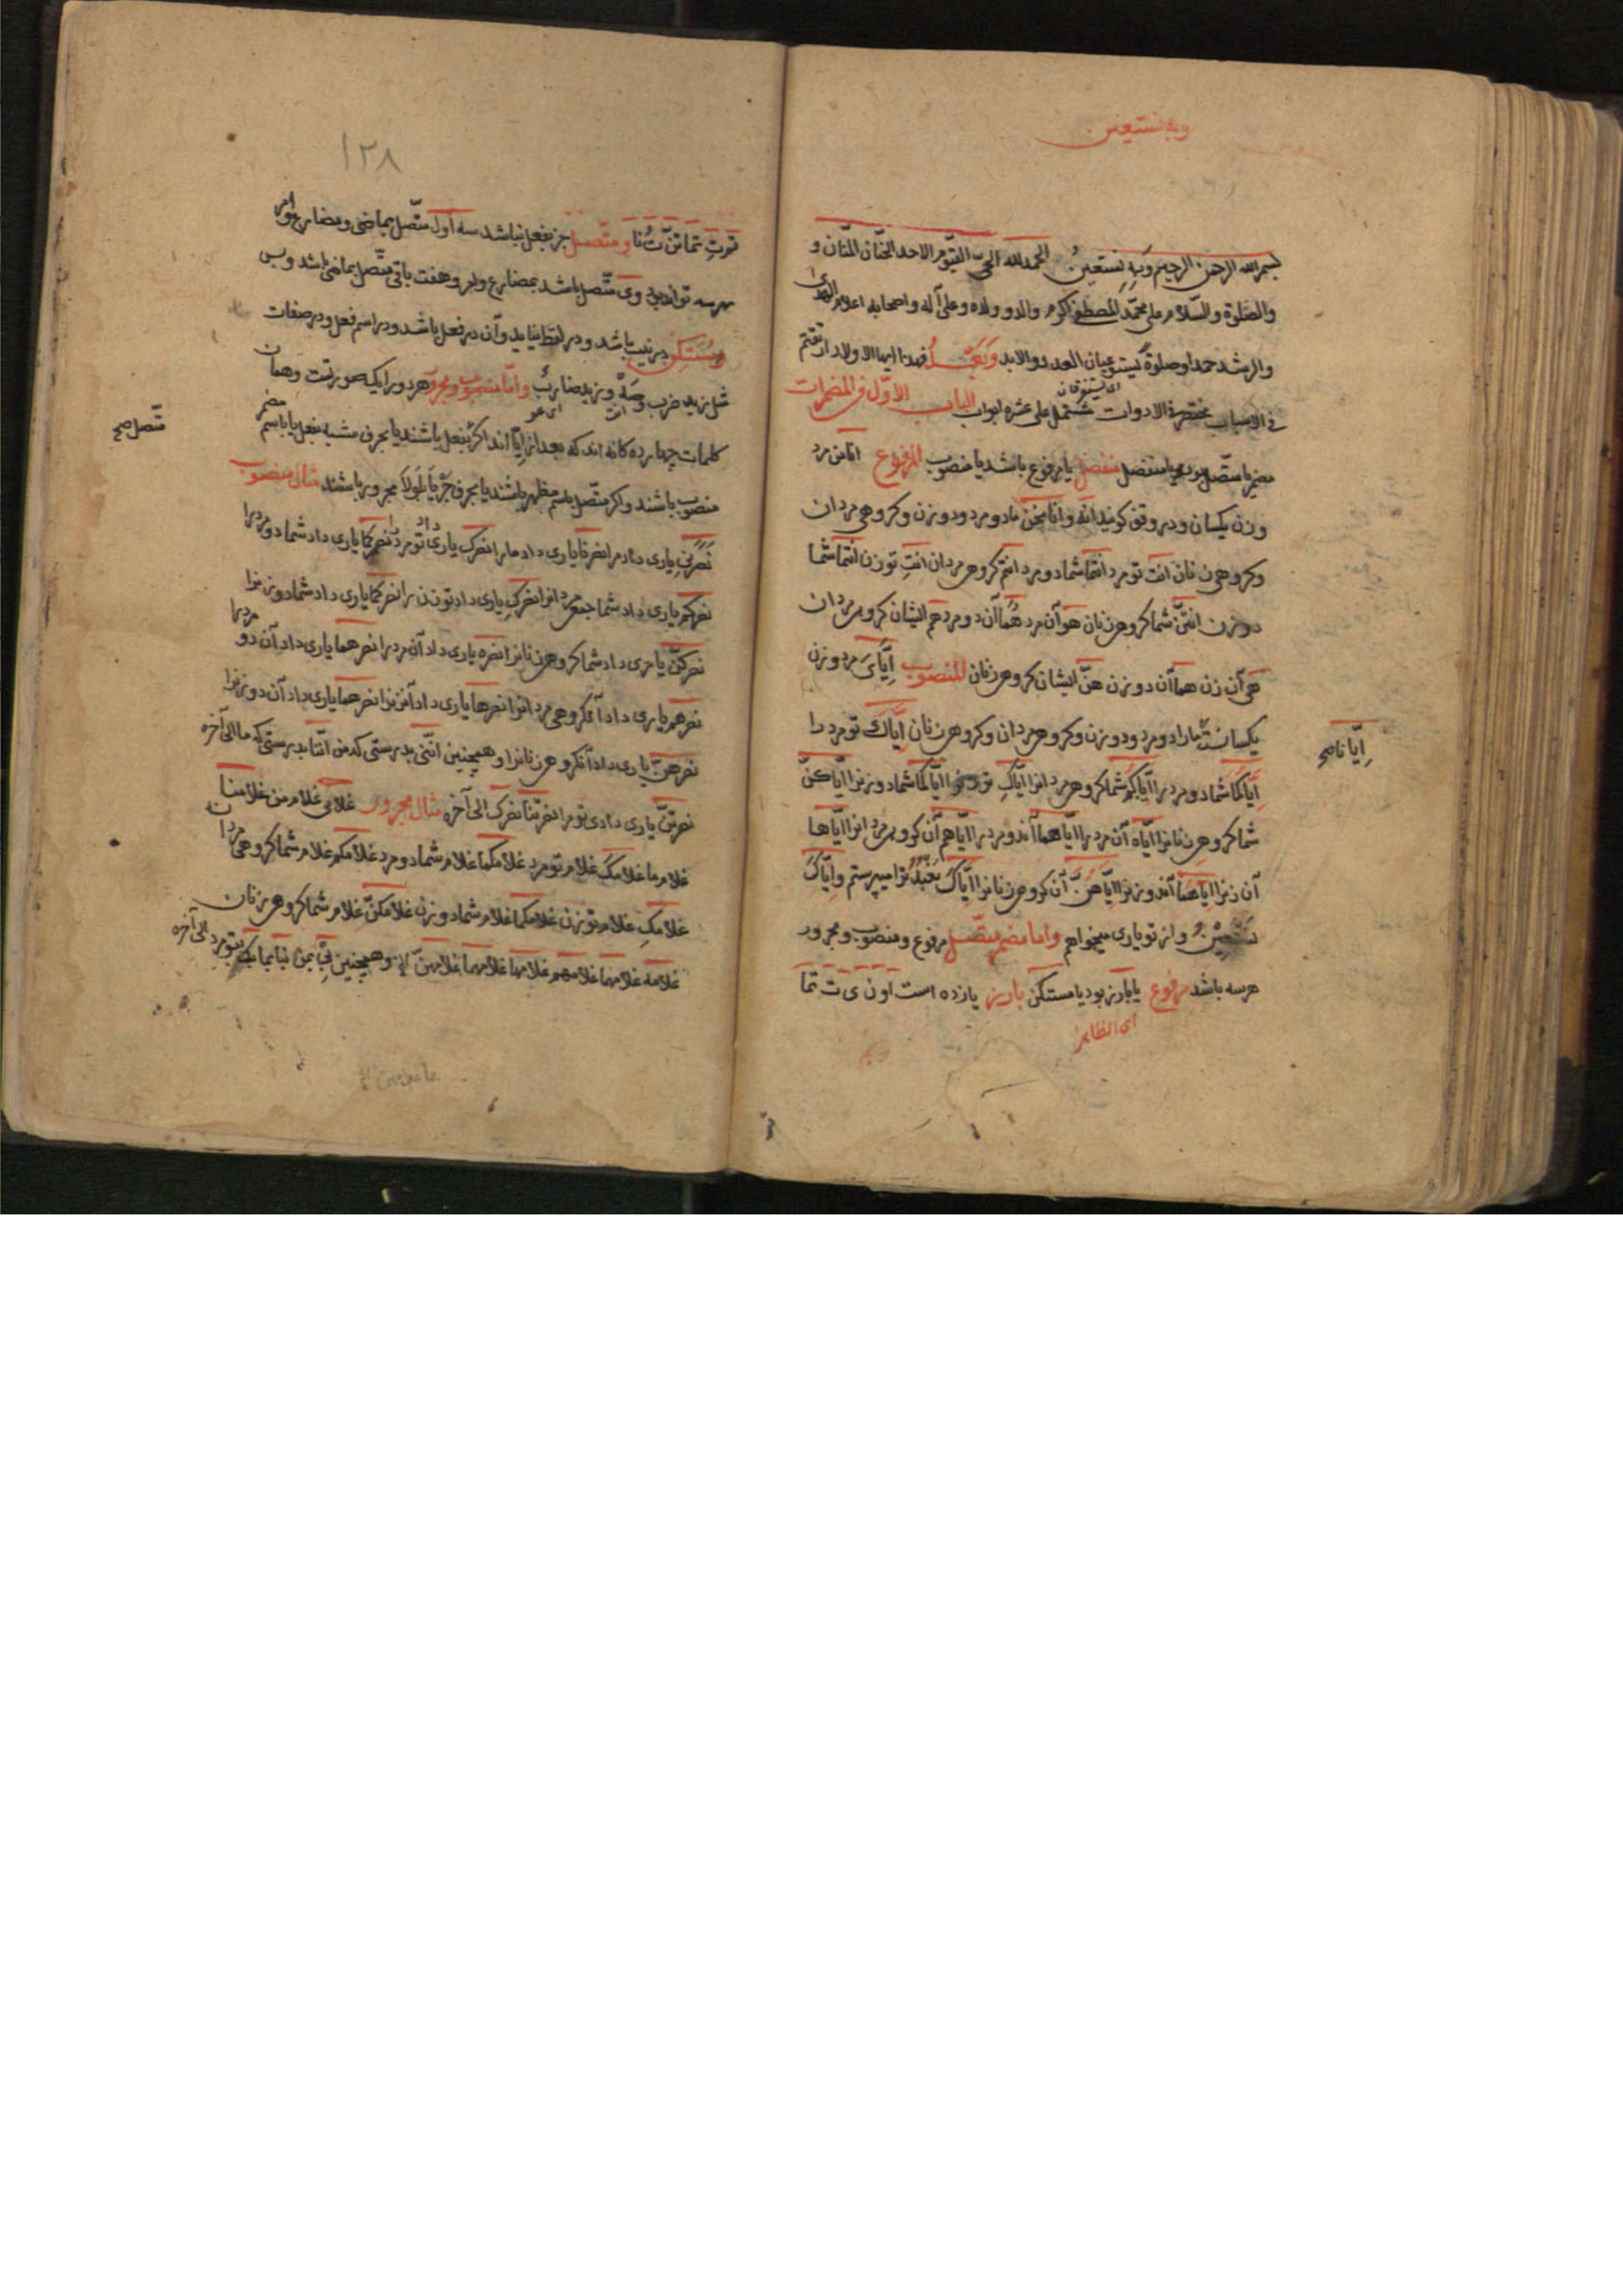 وبه نستعین
بسم الله الرحمن الرحیم وَبِهِ نستعینُ الحمدلله الحیّ القیّوم الاحد الحنّان المنّان و
والصّلوة والسّلام علی محمّد المصطفی اکرم والد وولاده وعلی آله واصحابه اعلام الهدی
والرشد حمدا وصلوة یستوعبان العدد والابد وَبَعْدُ فهذا ایها الاولاد
ای یستغرقان
فی الاسباب مختصرة الادوات مشتمل علی عشره ابواب الباب الاوّل فی المضمرات
مضمر یا متّصل بود یا منفصل منفصل یا مرفوع باشد یا منصوب المرفوع انا من مرد
وزن یکسان ودر وقف کویند انَه وانا نحن ما دو مرد ودو زن وکروهی مردان
وکروهی زنان انت تو مرد انتما شما دو مرد انتم کروهی مردان انتِ تو زن انتما شما
دو زن انتنّ شما کروهی زنان هو آن مرد هُما آن دو مرد هم ایشان کروهی مردان
هی آن زن هما آن دو زن هنّ ایشان کروهی زنان المنصوب اِیّایَ مرد وزن
یکسان ما را دو مرد ودو زن وکروهی مردان وکروهی زنان اِیّاکَ تو مرد را
اِیّانا صح
اِیّاکما شما دو مرد را ایّاکم شما کروهی مردانرا ایّاکِ تو زنرا ایّاکما شما دو زنرا ایّاکنّ
شما کروهی زنانرا ایّاه آن مرد را ایّاهما آندو مرد را ایّاهم آن کروهی مردانرا ایّاها
آن زنرا ایّاهما آندو زنرا ایّاهُنَّ آن کروهی زنانرا ایّاکَ نَعْبُدُ ترا میپرستم وایّاکَ
نَسْتَعِیْنُ واز تو یاری میخواهم واما مضمر متّصل مرفوع ومنصوب ومجرور
هرسه باشد مرفوع یا بارز بود یا مستکن بارز یازده است ا و ن ی ت تما
ای الظاهر
۱۲۸
تم تِ تما تنّ تُ نا ومتّصل جز بفعل نباشد سه اول متّصل بماضی ومضارع وامر
هرسه تواند بود وی متّصل باشد بمضارع وامر وهفت باقی متّصل بماضی باشد وبس
ومُسْتَکِن در نیت باشد ودر لفظ نیاید وآن در فعل باشد ودر اسم فعل ودر صفات
مثل زید ضرب وصَهْ وزید ضاربٌ وامّا منصوب ومجرور هر دو را یک صورتست وهمان
انت ای هو
کلمات چهارده کانه اند که بعد از ایّا اند اکر بفعل باشند یا بحرف مشبه بفعل یا باسم مضمر
متّصل صح
منصوب باشند واکر متّصل باسم مظهر باشند یا بحرف جَرْ یا بَلَولا مجرور باشند مثال منصوب
نَصَرَنی یاری داد مرا نصرنا یاری داد ما را نصرک یاری داد تو مرد را نصرکما یاری داد شما دو مرد را
نصرکم یاری داد شما جمع مردانرا نصرکِ یاری داد تو زن را نصرکما یاری داد شما دو زنرا
نصرکنّ یاری داد شما کروهی زنانرا نصره یاری داد آن مرد را نصرهما یاری داد آن دو مردرا
نصرهم یاری داد آن کروهی مردانرا نصرها یاری داد آنزنرا نصرهما یاری داد آن دو زنرا
نصرهنّ یاری داد آنکروهی زنانرا وهمچنین انّنی بدرستی که من انّنا بدرستی که ما الی آخره
نصرتَنی یاری دادی تو مرا نصرتنا نصرک الی آخره مثال مجرور غلامی غلام من غلامنا
غلام ما غلامکَ غلام تو مرد غلامکما غلام شما دو مرد غلامکم غلام شما کروهی مردان
غلامکِ غلام تو زن غلامکما غلام شما دو زن غلامکنّ غلام شما کروهی زنان
غلامه غلامهما غلامهم غلامها غلامهما غلامهنّ وهمچنین بی بمن بنا بما بکَ بتو مرد الی آخره